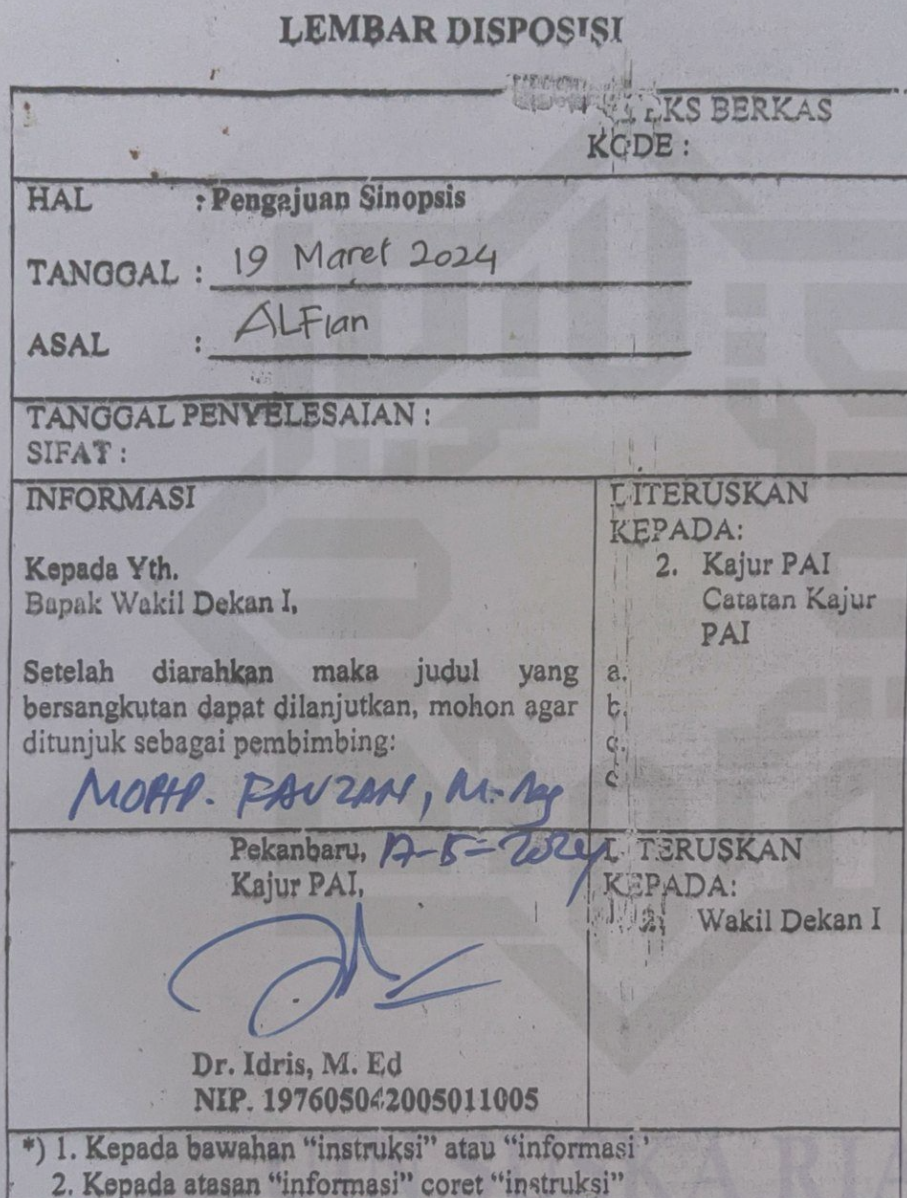 LEMBAR DISPOSISI
BERKAS
KODE :
HAL : Pengajuan Sinopsis
TANGGAL : 19 Maret 2024
ASAL : ALFian
TANGGAL PENYELESAIAN :
SIFAT :
INFORMASI
Kepada Yth.
Bapak Wakil Dekan I,
Setelah diarahkan maka judul yang
bersangkutan dapat dilanjutkan, mohon agar
ditunjuk sebagai pembimbing:
MOHD. FAUZAN, M. Ag
DITERUSKAN
KEPADA:
2. Kajur PAI
Catatan Kajur
PAI
a.
b.
c.
Pekanbaru, 2024
Kajur PAI,
Dr. Idris, M. Ed
NIP. 197605042005011005
DITERUSKAN
KEPADA:
2. Wakil Dekan I
*) 1. Kepada bawahan "instruksi" atau "informasi"
2. Kepada atasan "informasi" coret "instruksi"